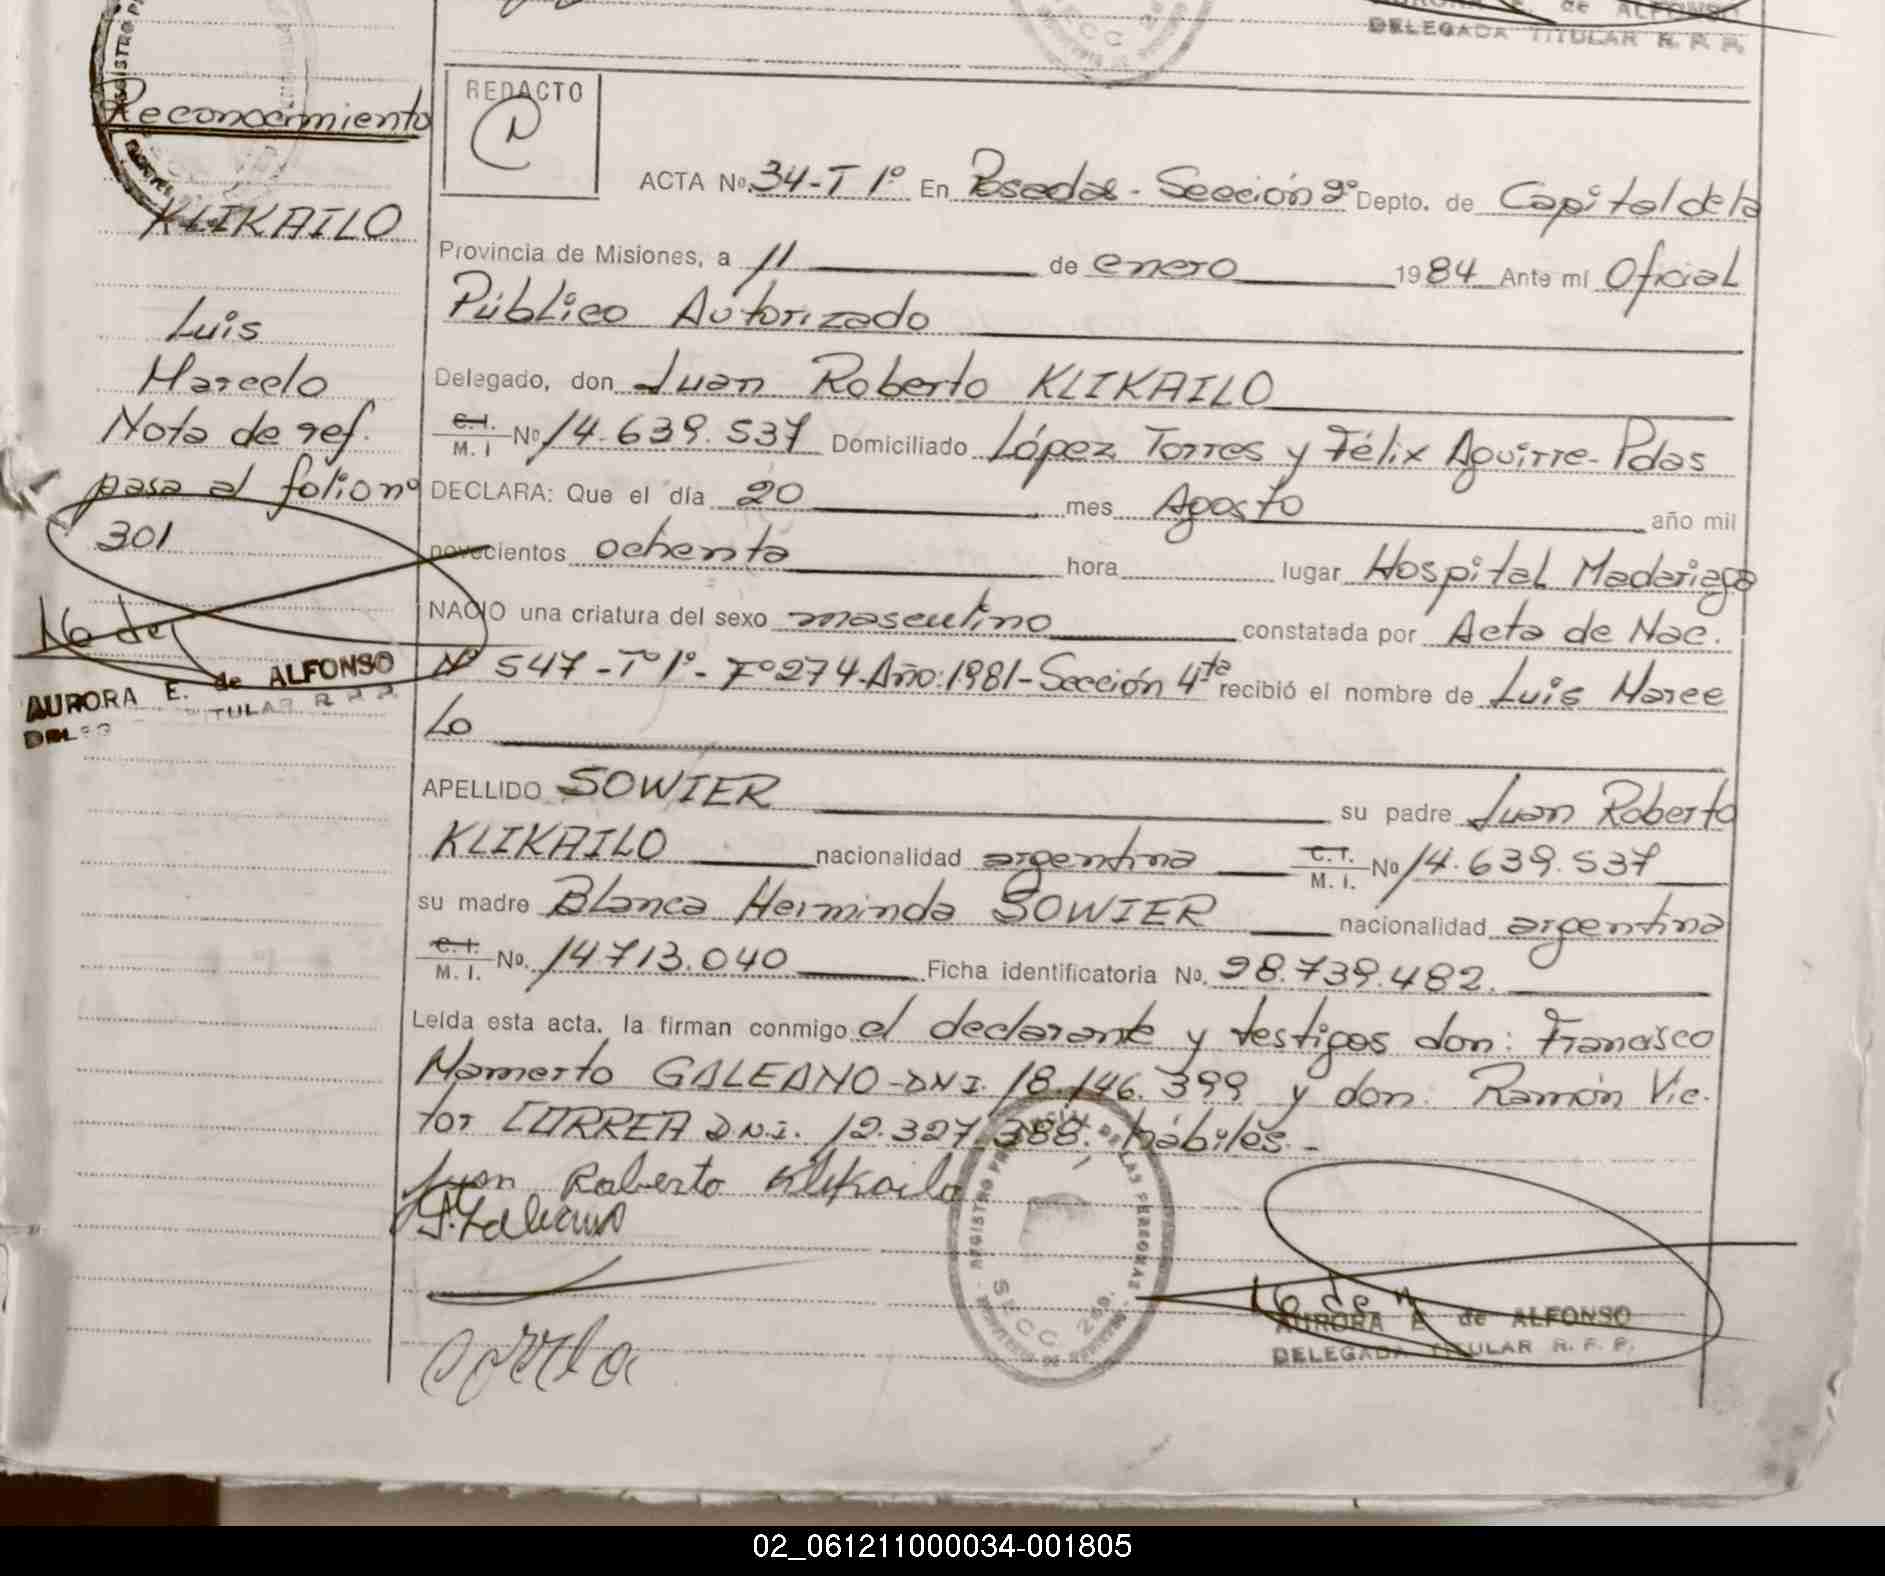 AURORA E. de ALFONSO
DELEGADA TITULAR R. P. P.
Reconocimiento
KLIKAILO
Luis
Marcelo
Nota de ref.
pasa al folio nº
301
AURORA E. de ALFONSO
REDACTO
ACTA No. 34-T 1º En Posadas - Sección 2º Depto. de Capital de la
Provincia de Misiones, a 11 de enero 1984 Ante mí Oficial
Público Autorizado
Delegado, don Juan Roberto KLIKAILO
C.I. M. I No 14.639.537 Domiciliado López Torres y Félix Aguirre - Pdas
DECLARA: Que el día 20 mes Agosto año mil
novecientos ochenta hora lugar Hospital Madariaga
NACIO una criatura del sexo masculino constatada por Acta de Nac.
Nº 547 - Tº 1º - Fº 274 - Año: 1981 - Sección 4ta recibió el nombre de Luis Marce
lo
APELLIDO SOWIER su padre Juan Roberto
KLIKAILO nacionalidad argentina C.I. M. I. No 14.639.537
su madre Blanca Herminda SOWIER nacionalidad argentina
C.I. M. I. No. 14713.040 Ficha identificatoria No. 28.739.482.
Leída esta acta, la firman conmigo el declarante y testigos don: Francisco
Mamerto GALEANO - DNI. 18.146.399 y don. Ramón Vic.
tor CORREA D.N.I. 12.327.388. hábiles. -
Juan Roberto Klikailo
REGISTRO PROVINCIAL DE LAS PERSONAS
SECC 2da.
AURORA E de ALFONSO
DELEGADA TITULAR R. P. P.
02_061211000034-001805